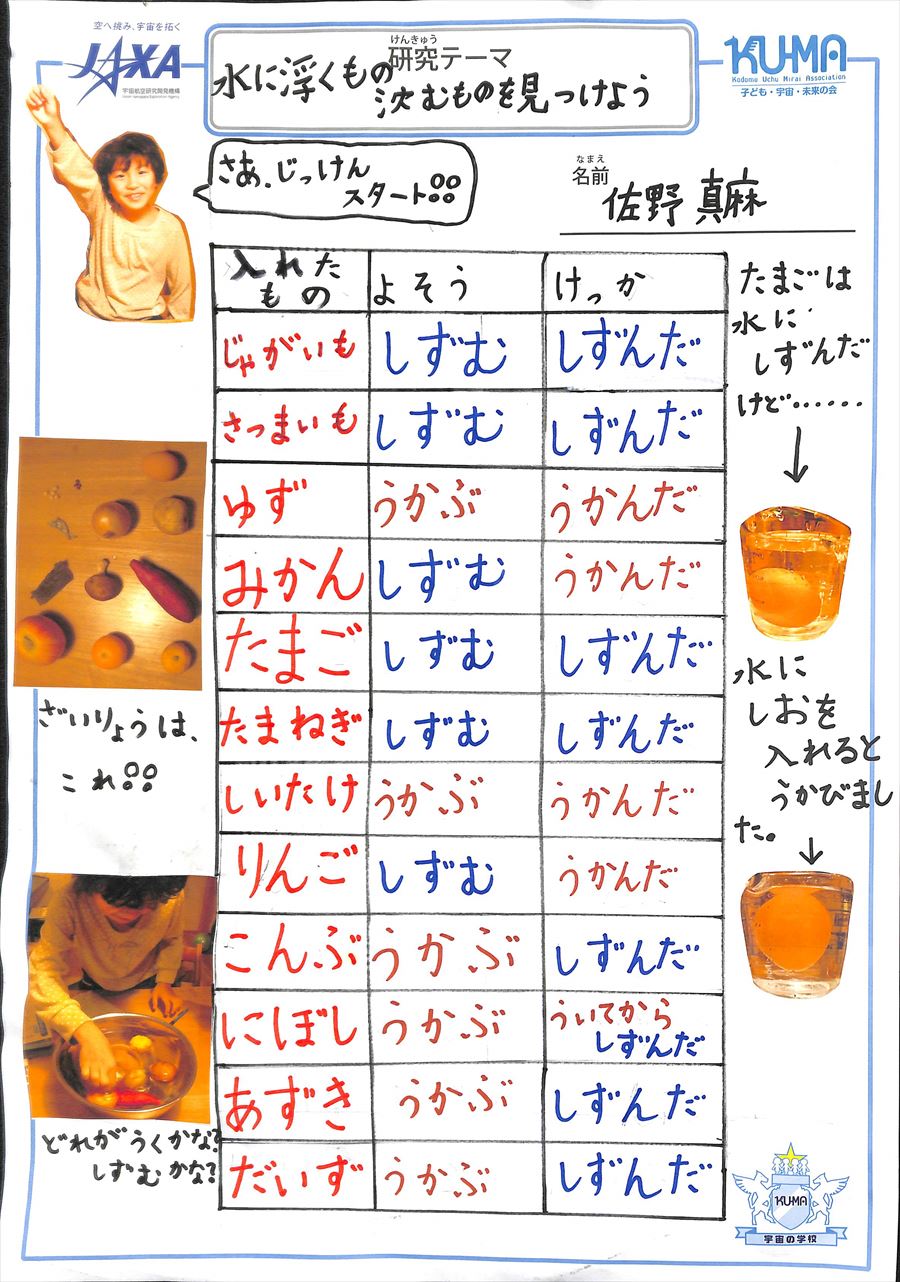 空へ挑み、宇宙を拓く
JAXA
宇宙航空研究開発機構
Japan Aerospace Exploration Agency
けんきゅう
研究テーマ
水に浮くもの
沈むものを見つけよう
KU-MA
Kodomo Uchu Mirai Association
子ども・宇宙・未来の会
さあ、じっけん
スタート!!
なまえ
名前
佐野 真麻
入れた よそう けっか
もの
じゃがいも しずむ しずんだ
さつまいも しずむ しずんだ
ゆず うかぶ うかんだ
みかん しずむ うかんだ
たまご しずむ しずんだ
たまねぎ しずむ しずんだ
しいたけ うかぶ うかんだ
りんご しずむ うかんだ
こんぶ うかぶ しずんだ
にぼし うかぶ ういてから
しずんだ
あずき うかぶ しずんだ
だいず うかぶ しずんだ
ざいりょうは、
これ!!
どれがうくかな?
しずむかな?
たまごは
水に
しずんだ
けど……
水に
しおを
入れると
うかびまし
た。
KUMA
宇宙の学校